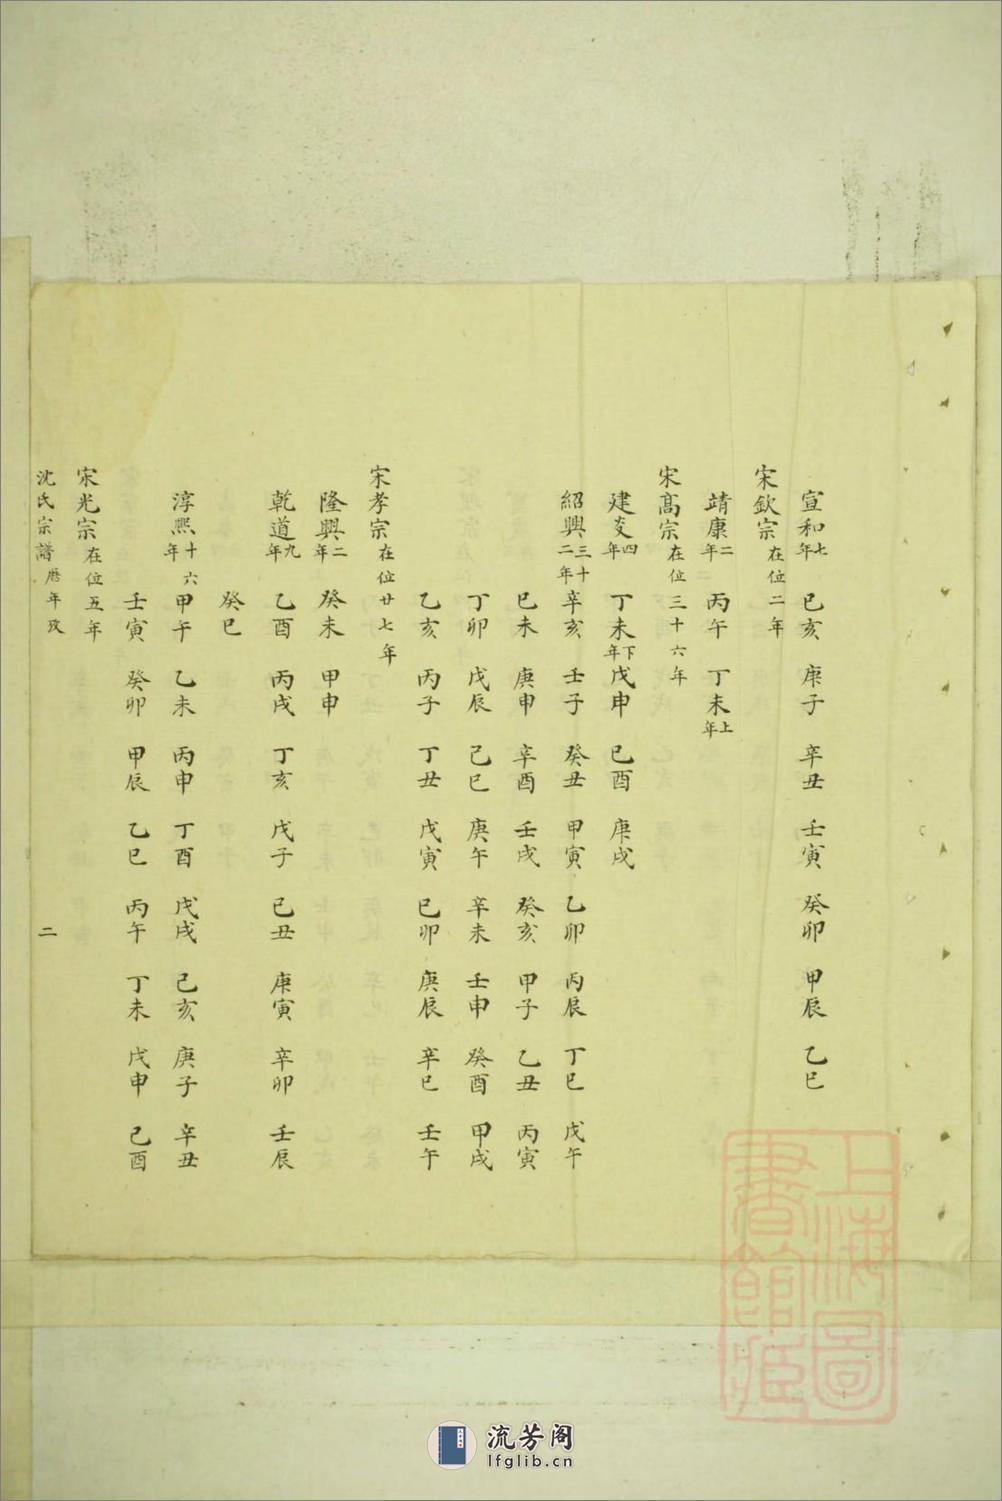 宣和七年 己亥 庚子 辛丑 壬寅 癸卯 甲辰 乙巳
宋欽宗在位二年
靖康二年 丙午 丁未上年
宋髙宗在位三十六年
建炎四年 丁未下年 戊申 己酉 庚戌
紹興三十二年 辛亥 壬子 癸丑 甲寅 乙卯 丙辰 丁巳 戊午
己未 庚申 辛酉 壬戌 癸亥 甲子 乙丑 丙寅
丁卯 戊辰 己巳 庚午 辛未 壬申 癸酉 甲戌
乙亥 丙子 丁丑 戊寅 己卯 庚辰 辛巳 壬午
宋孝宗在位廿七年
隆興二年 癸未 甲申
乾道九年 乙酉 丙戌 丁亥 戊子 己丑 庚寅 辛卯 壬辰
癸巳
淳熙十六年 甲午 乙未 丙申 丁酉 戊戌 己亥 庚子 辛丑
壬寅 癸卯 甲辰 乙巳 丙午 丁未 戊申 己酉
宋光宗在位五年
沈氏宗譜 曆年攷 二
上海圖書館藏
流芳阁
lfglib.cn